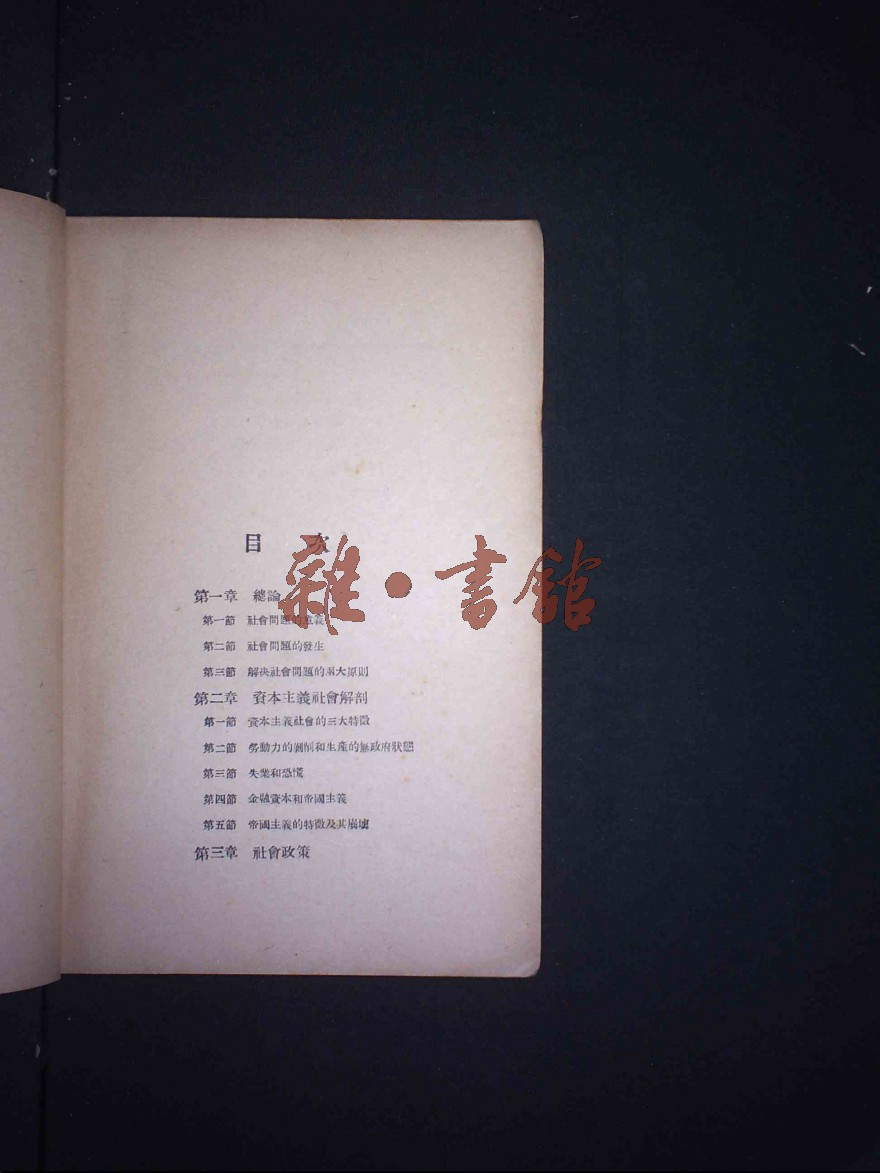 目 次
第一章 總論
第一節 社會問題的意義
第二節 社會問題的發生
第三節 解決社會問題的兩大原則
第二章 資本主義社會解剖
第一節 資本主義社會的三大特徵
第二節 勞動力的剝削和生產的無政府狀態
第三節 失業和恐慌
第四節 金融資本和帝國主義
第五節 帝國主義的特徵及其崩壞
第三章 社會政策
雜·書館